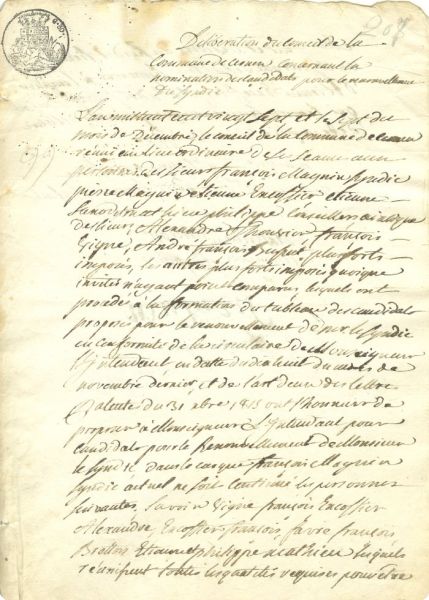 207
Déliberation du Conseil de la
Commune de cenen concernant la
nomination des Candidats pour le renouvellement
Du Syndic
L'an mil huit cent vingt Sept et le Sept du
mois de Décembre, le conseil de la Commune de cenen
réuni au lieu ordinaire de Se Séance aux
personnes des Sieurs françois Magnin Syndic
pierre Magnin etienne Encoffier etienne
philippe Conseillers
de Sieurs Alexandre françois
Vigne, André françois plus forts
imposés, les autres plus forts imposés quoique
invités n'ayant point comparus, lesquels ont
procédé à la formation du tableau des candidats
proposés pour le renouvellement de mr le Syndic
en Conformité de la circulaire de Monseigneur
L'Intendant en datte du dixhuit du mois de
novembre dernier et de l'art deux des lettres
Patentes du 31 xbre 1815 ont l'honneur de
proposer à Monseigneur L'Intendant pour
Candidats pour le Renouvellement de Monsieur
le Syndic dans le cas que françois Magnin
Syndic actuel ne soit Continué les personnes
suivantes, Savoir Vigne françois Encoffier
Alexandre Encoffier françois, favre françois
Brellon Etienne et philippe mathieu lesquels
réunissent toutes les qualités requises pour être